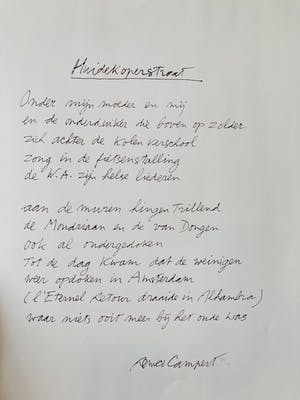 Huidekoperstraat
Onder mijn moeder en mij
en de onderduiker die boven op zolder
zich achter de kolen verschool
zong in de fietsenstalling
de W.A. zijn helse liederen
aan de muren hingen trillend
de Mondriaan en de van Dongen
ook al ondergedoken
tot de dag kwam dat de weinigen
weer opdoken in Amsterdam
(l'Eternel Retour draaide in Alhambra)
waar niets ooit meer bij het oude was
Remco Campert